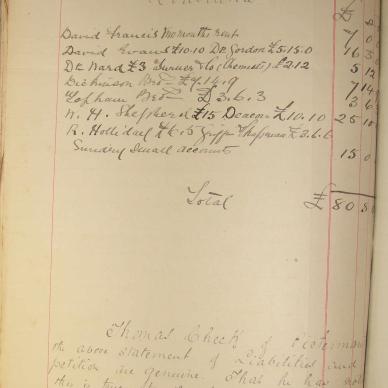 £
David Francis two months rent 7 0
David Evans £10.10 Dr. Gordon £5.15.0 16 5
Dr Ward £3 Turner & Co (Chemists) £2.12 5 12
Dickinson Bros £7.14.9 7 14
Topham Bros £3.6.3 3 6
W. H. Shepherd £15 Deacon £10.10 25 10
R. Holliday £6.5 Chapman £3.6.6
Sundry small accounts 15 0
Total £ 80 8
Thomas Check of
the above statement of Liabilities and
petition are genuine. That he has not
this is true